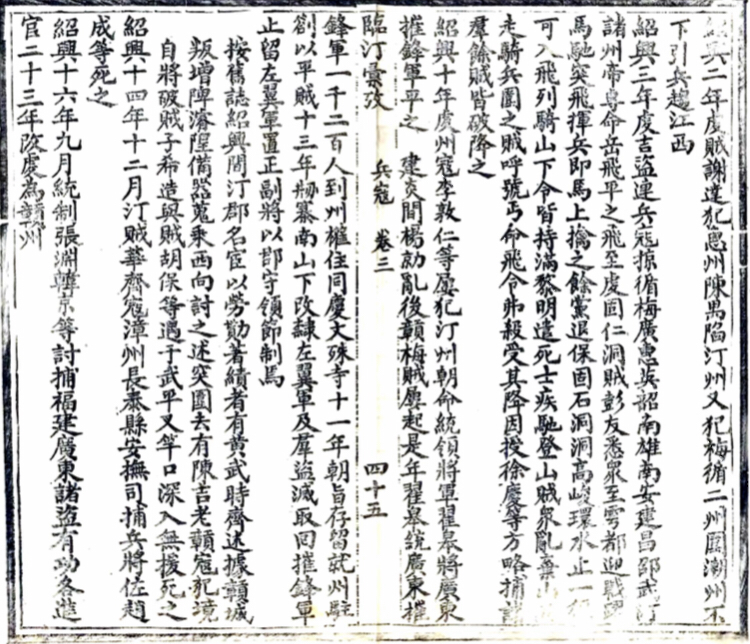 紹興二年虔賊謝達犯惠州陳顒陷汀州又犯梅循二州圍潮州不
下引兵趨江西
紹興三年虔吉盜連兵寇掠循梅廣惠英韶南雄南安建昌邵武汀
諸州帝專命岳飛平之飛至虔固仁洞賊彭友悉衆至雩都迎戰躍
馬馳突飛揮兵即馬上擒之餘黨退保固石洞洞高峻環水止一徑
可入飛列騎山下令皆持滿黎明遣死士疾馳登山賊衆亂棄山
走騎兵圍之賊呼號丐命飛令弗殺受其降因授徐慶等方略捕諸
羣餘賊皆破降之
紹興十年虔州寇李敦仁等屢犯汀州朝命統領將軍翟皋將廣東
摧鋒軍平之 建炎間楊勍亂後贛梅賊屢起是年翟皋統廣東摧
臨汀彙攷 兵寇 卷三 四十五
鋒軍一千二百人到州權住同慶文殊寺十一年朝旨存留就州駐
劄以平賊十三年剏寨南山下改隸左翼軍及羣盜滅取回摧鋒軍
止留左翼軍置正副將以郡守領節制焉
按舊誌紹興間汀郡名宦以勞勤著績者有黃武時齊述據贛城
叛增陴濬隍備器蒐乘西向討之述突圍去有陳吉老贛寇犯境
自將破賊子希造與賊胡保等遇于武平又竿口深入無援死之
紹興十四年十二月汀賊華齊寇漳州長泰縣安撫司捕兵將佐趙
成等死之
紹興十六年九月統制張淵韓京等討捕福建廣東諸盜有功各進
官二十三年改虔為贛州